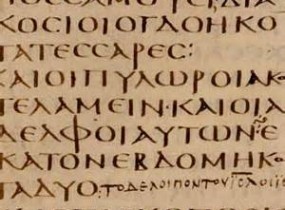 ΚΟϹΙΟΙΟΓΔΟΗΚΟ
ΤΑΤΕϹϹΑΡΕϹ:
ΚΑΙΟΙΠΥΛΩΡΟΙΑΚ
ΤΕΛΑΜΕΙΝ·ΚΑΙΟΙΑ
ΔΕΛΦΟΙΑΥΤΩΝ Ε
ΚΑΤΟΝΕΒΔΟΜΗΚΟ
ΤΑΔΥΟ· ΤΟΔΕΛΟΙΠΟΝΤΟΥ